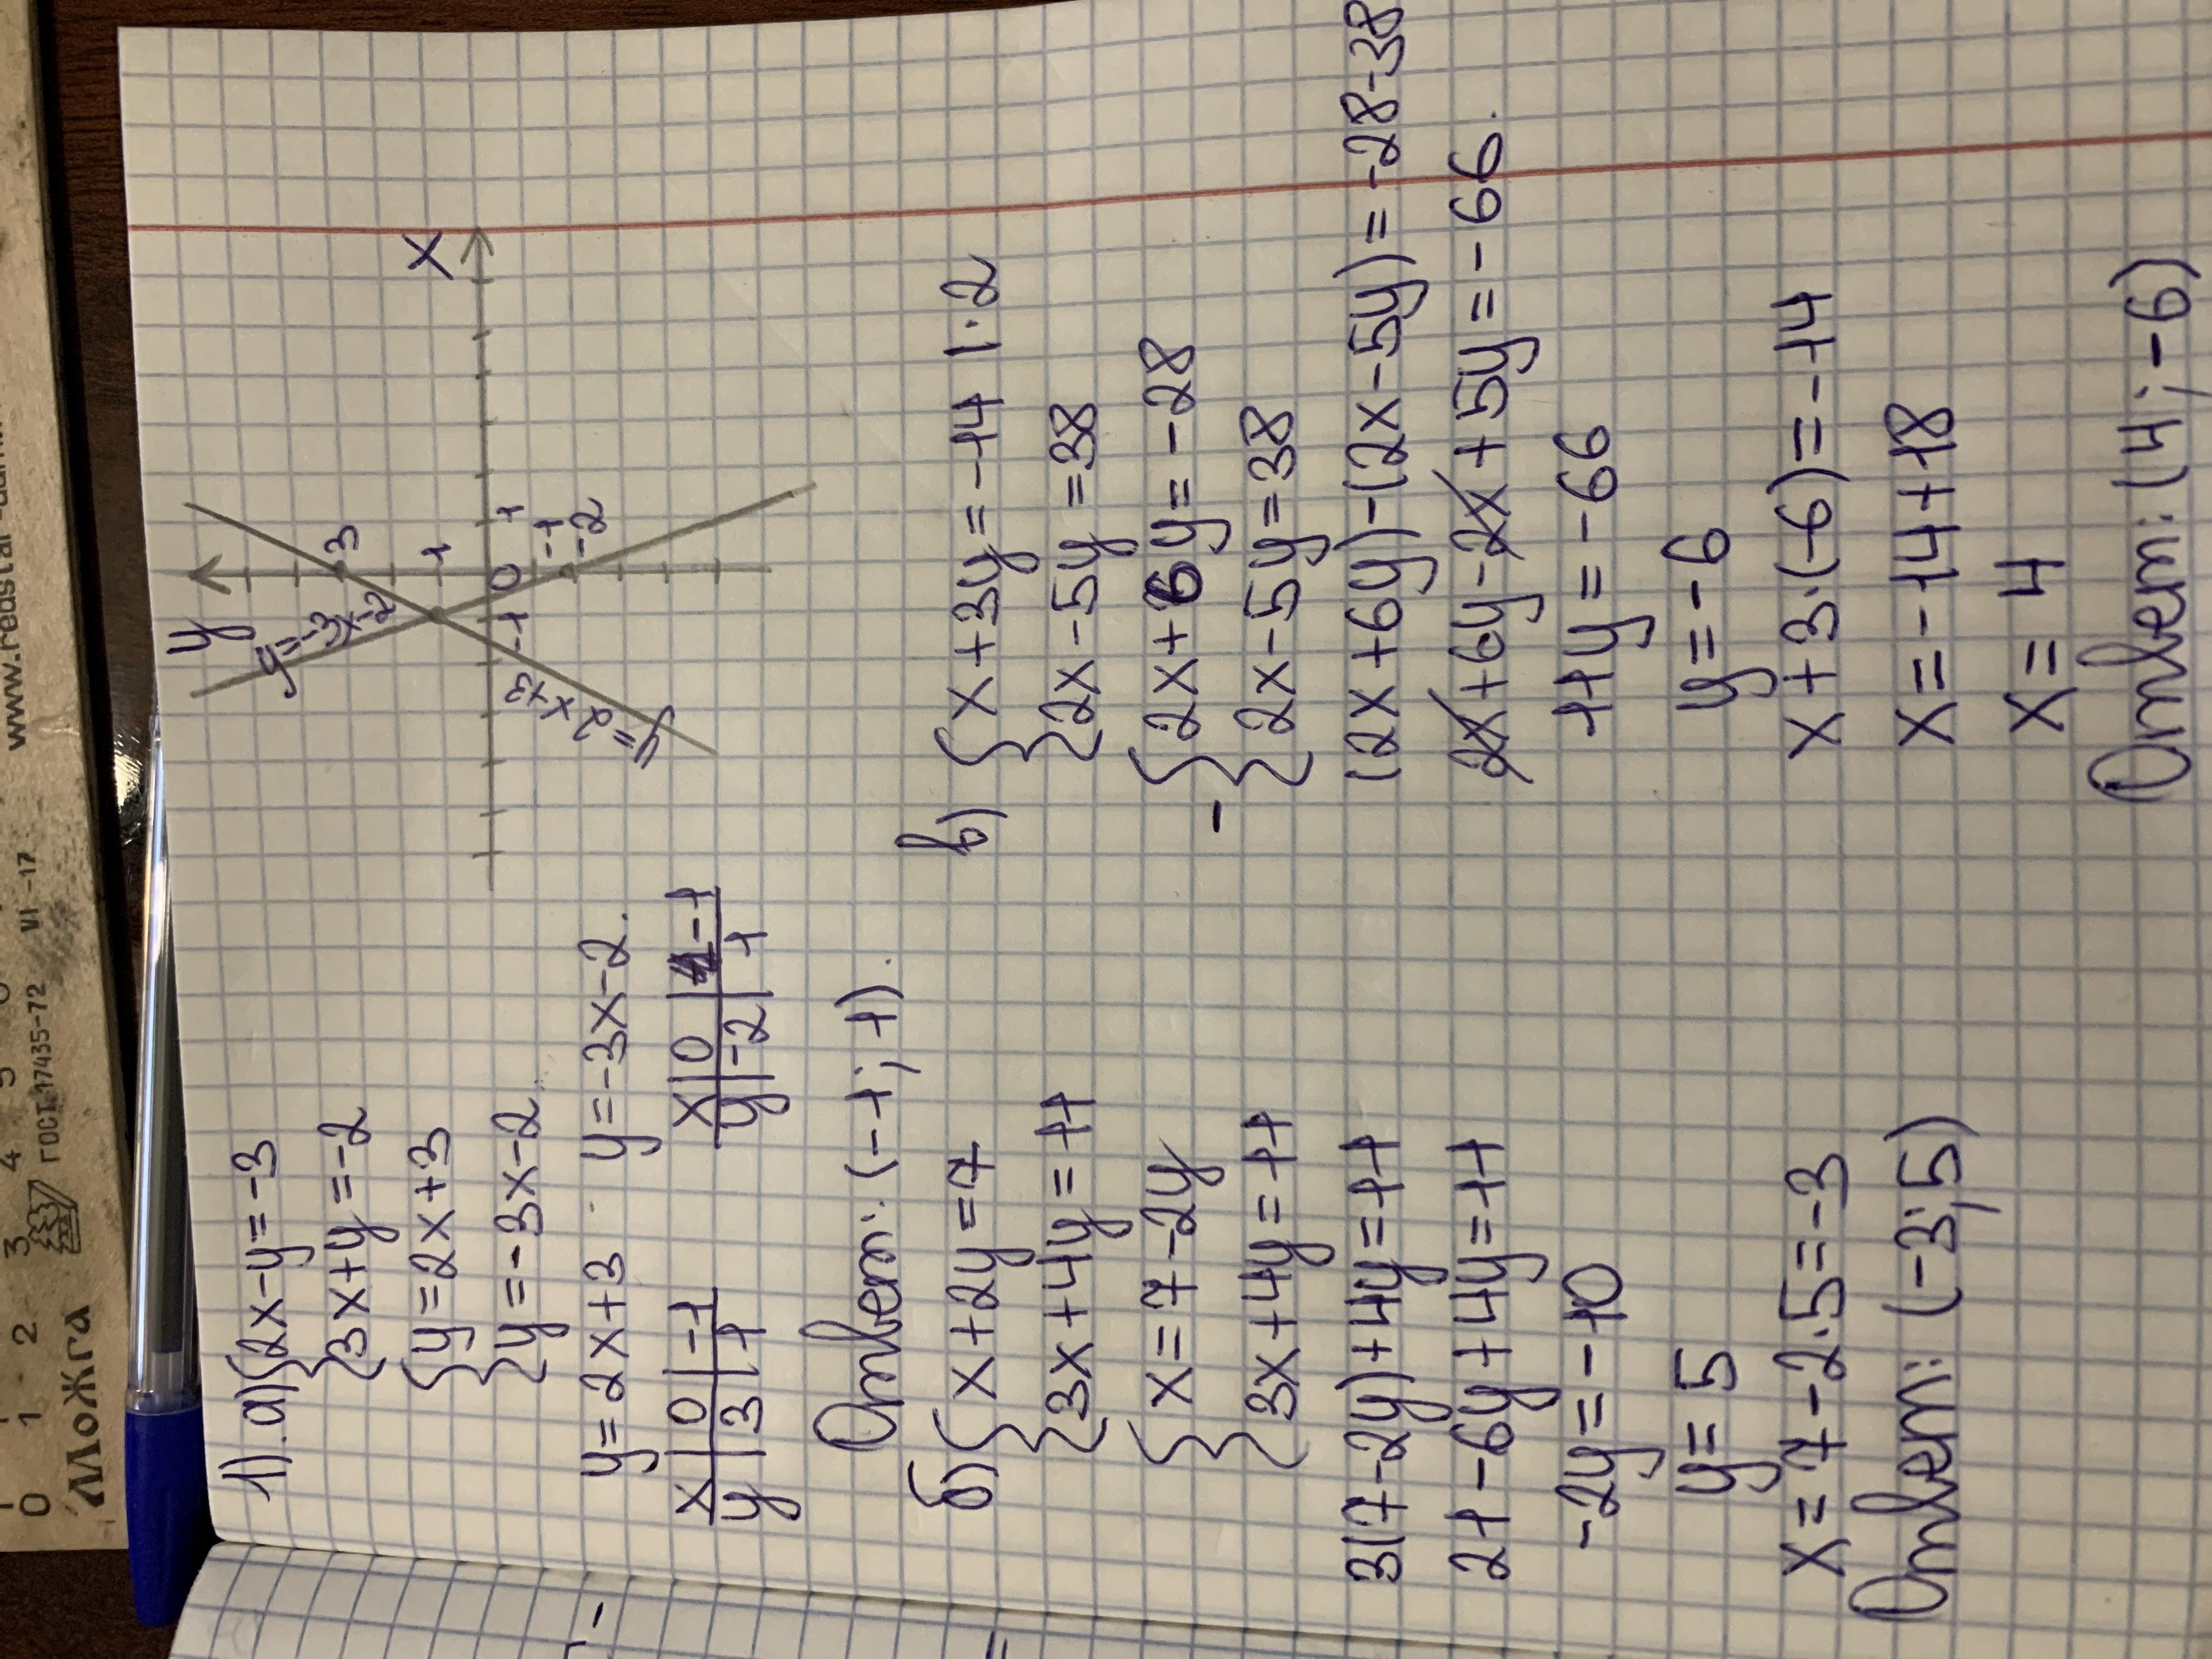 www.redstar-
0 1 2 3 4 5
Можга ГОСТ 17435-72 VI-17
1). а) { 2x-y=-3
{ 3x+y=-2
{ y=2x+3
{ y=-3x-2
y=2x+3 y=-3x-2.
x|0|-1 x|0|-1
y|3|1 y|-2|1
Ответ: (-1; 1).
y
x
3
1
0
1
-1
-1
-2
y=-3x-2
y=2x+3
б) { x+2y=7
{ 3x+4y=11
{ x=7-2y
{ 3x+4y=11
3(7-2y)+4y=11
21-6y+4y=11
-2y=-10
y=5
x=7-2·5=-3
Ответ: (-3; 5)
в) { x+3y=-14 |·2
{ 2x-5y=38
- { 2x+6y=-28
{ 2x-5y=38
(2x+6y)-(2x-5y)=-28-38
2x+6y-2x+5y=-66.
11y=-66
y=-6
x+3·(-6)=-14
x=-14+18
x=4
Ответ: (4; -6)